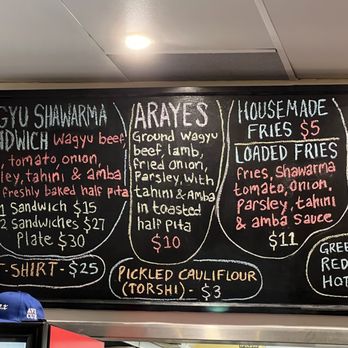 GYU SHAWARMA
NDWICH wagyu beef,
, tomato, onion,
ley, tahini & amba
freshly baked half pita
1 Sandwich $15
2 Sandwiches $27
Plate $30
T-SHIRT - $25
ARAYES
Ground wagyu
beef, lamb,
fried onion,
Parsley, with
tahini & Amba
in toasted
half pita
$10
PICKLED CAULIFLOUR
(TORSHI) - $3
HOUSEMADE
FRIES $5
LOADED FRIES
fries, Shawarma
tomato, onion,
parsley, tahini
& amba sauce
$11
GREE
RED
HOT